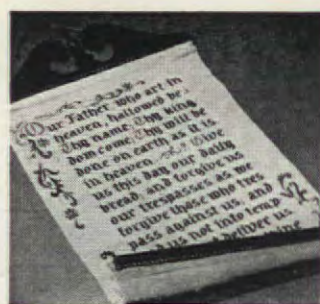 Our Father, who art in
heaven, hallowed be
Thy name; Thy king
dom come; Thy will be
done on earth as it is
in heaven. Give
us this day our daily
bread and forgive us
our trespasses as we
forgive those who tres
pass against us and
us not into temp
deliver us